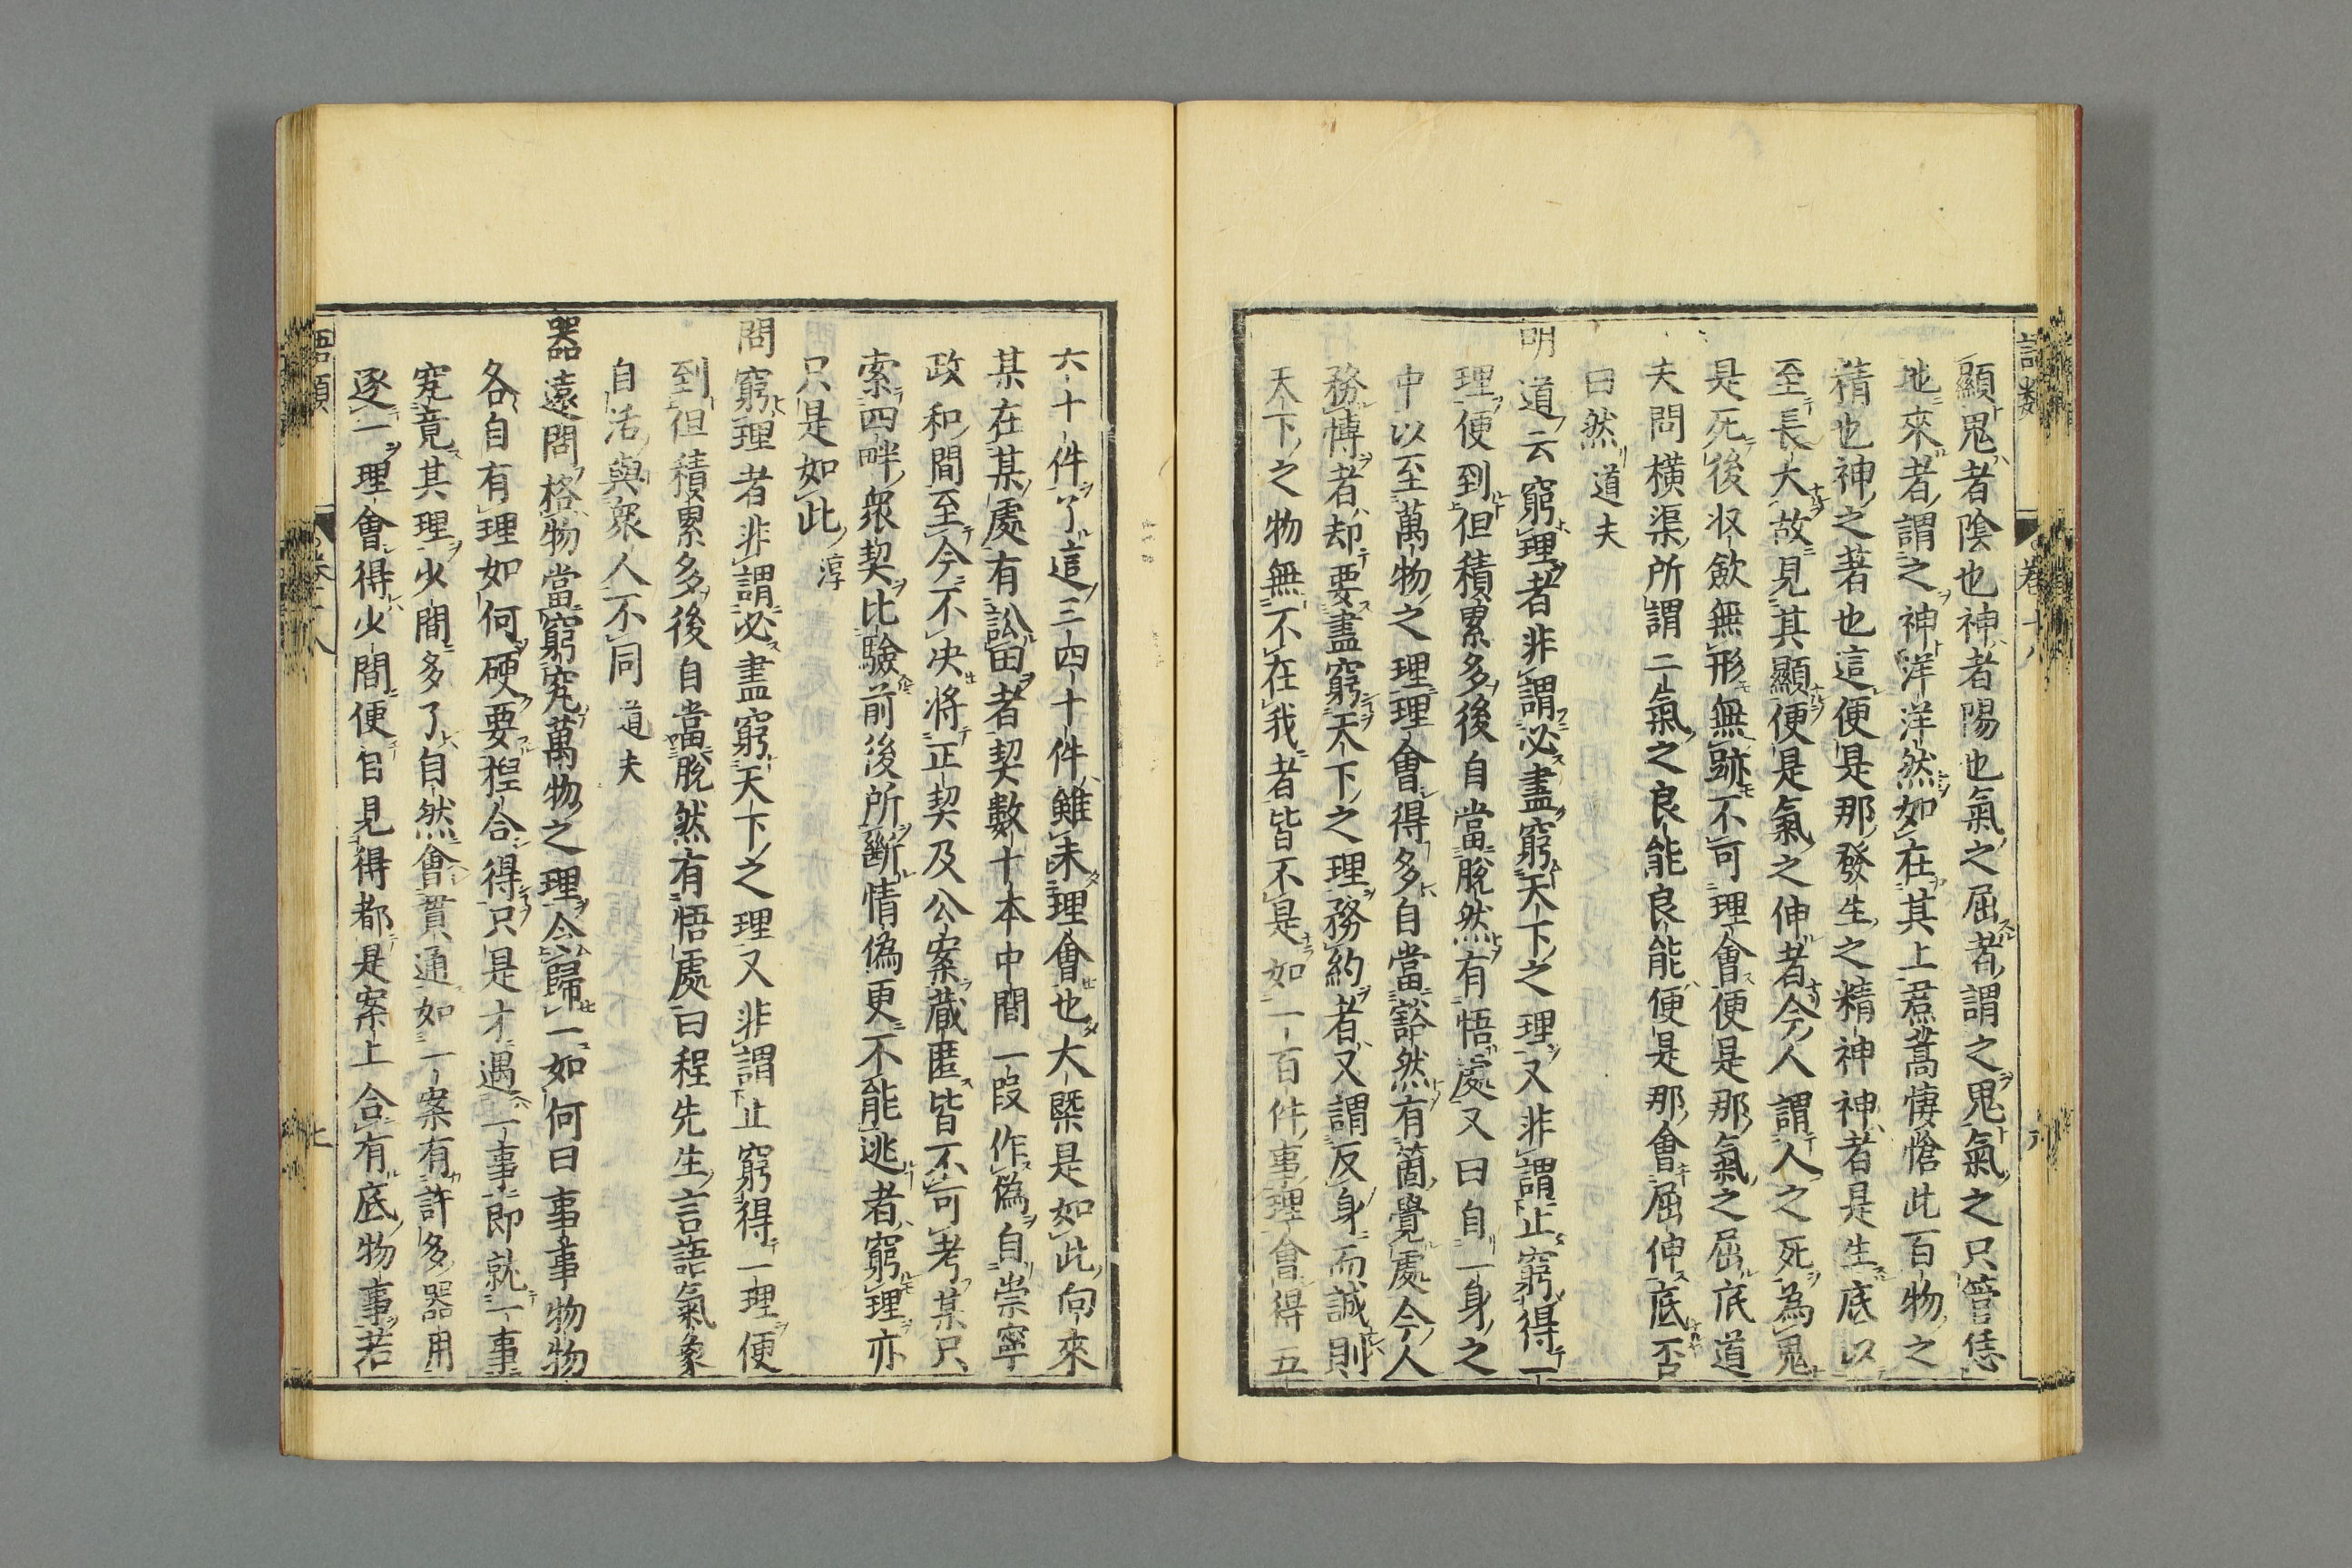 語類
卷十八
顯鬼者陰也神者陽也氣之屈者謂之鬼氣之只管恁
地來者謂之神洋洋然如在其上焄蒿悽愴此百物之
精也神之著也這便是那發生之精神神者是生底以
至長大故見其顯便是氣之伸者今人謂人之死為鬼
是死後收歛無形無跡不可理會便是那氣之屈底道
夫問橫渠所謂二氣之良能良能便是那會屈伸底否
曰然道夫
明道云窮理者非謂必盡窮天下之理又非謂止窮得一
理便到但積累多後自當脫然有悟處又曰自一身之
中以至萬物之理理會得多自當豁然有箇覺處今人
務博者却要盡窮天下之理務約者又謂反身而誠則
天下之物無不在我者皆不是如一百件事理會得五
六十件了這三四十件雖未理會也大槩是如此向來
某在某處有訟田者契數十本中間一段作偽自崇寧
政和間至今不決將正契及公案藏匿皆不可考某只
索四畔衆契比驗前後所斷情偽更不能逃者窮理亦
只是如此淳
問窮理者非謂必盡窮天下之理又非謂止窮得一理便
到但積累多後自當脫然有悟處曰程先生言語氣象
自活與衆人不同道夫
器遠問格物當窮究萬物之理令歸一如何曰事事物物
各自有理如何硬要捏合得只是才遇一事即就一事
究竟其理少間多了自然會貫通如一案有許多器用
逐一理會得少間便自見得都是案上合有底物事若
語類
卷十八
七